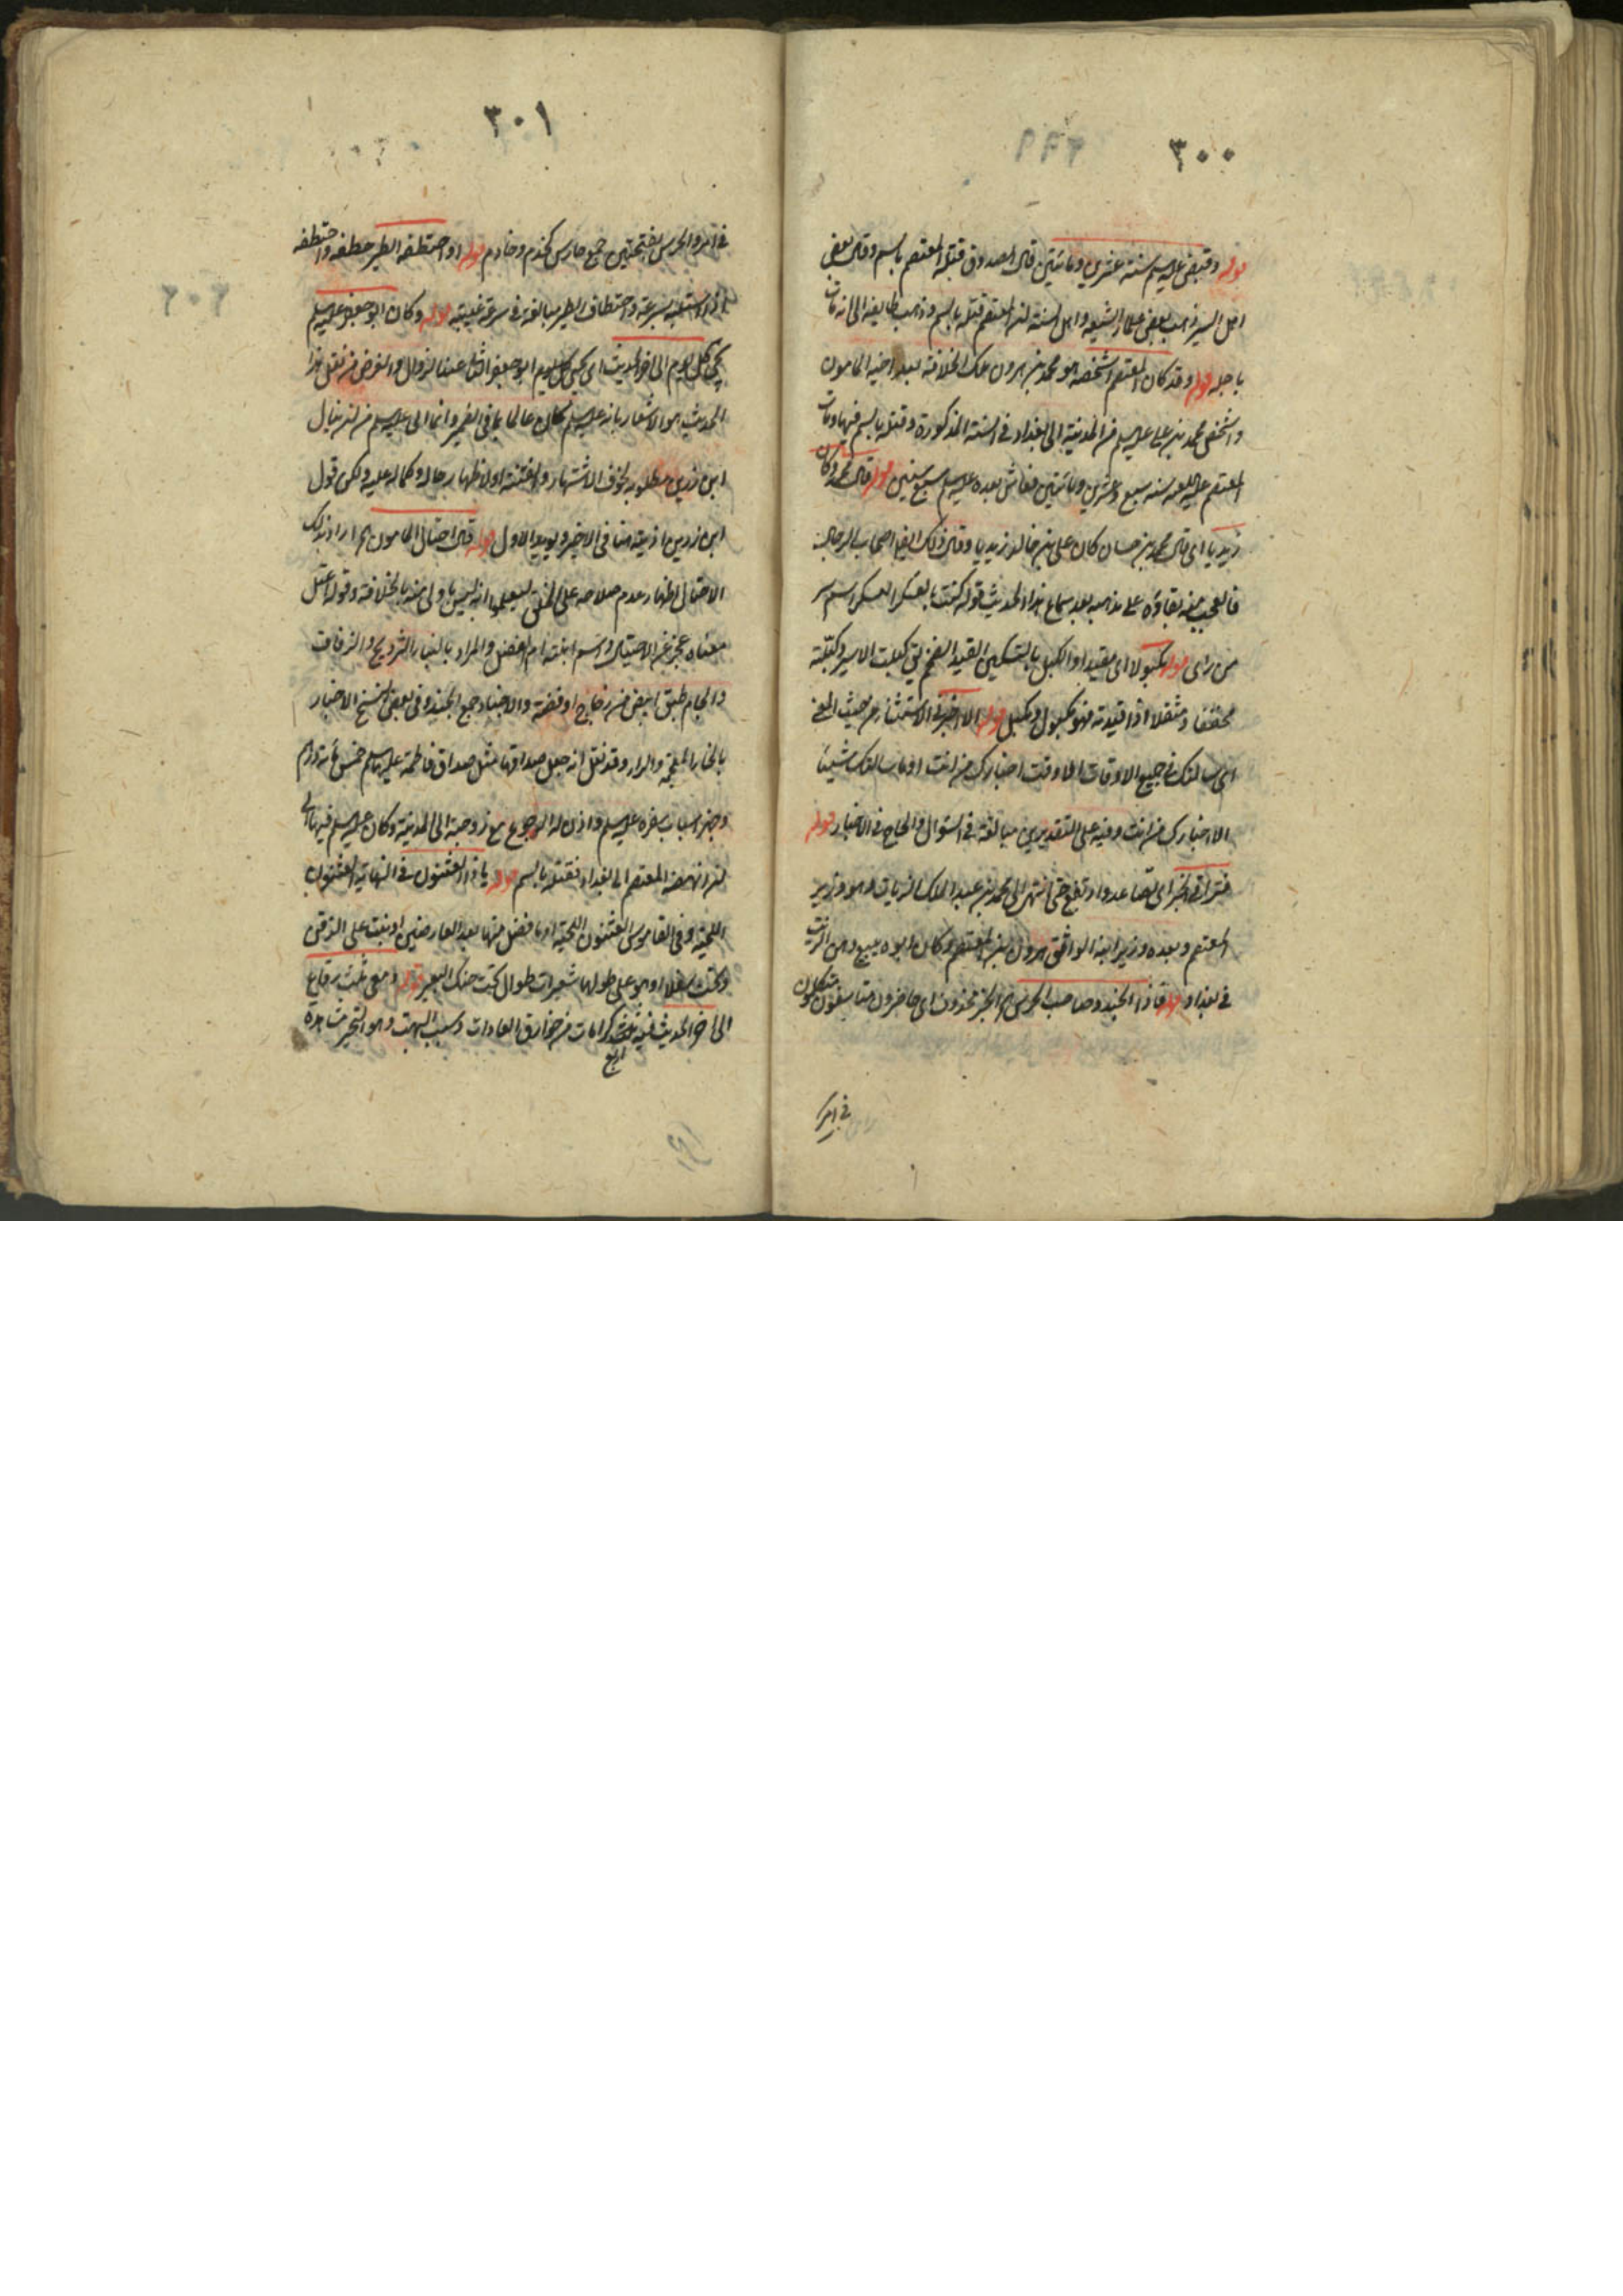 ٣٠٠
قوله وقبض عليه السلم سنة عشرين وماتين قال الصدوق قتله المعتصم بالسم وقال بعض
اهل السير ذهب بعض علماء الشيعة واهل السنة الى ان المعتصم قتله بالسم وذهب طايفة الى انه مات
باجله قوله وقد كان المعتصم اشخصه هو محمد بن هرون ملك الخلافة بعد اخيه المامون
واشخص محمد بن علي عليه السلم من المدينة الى بغداد في السنة المذكورة وقتله بالسم فيها ومات
المعتصم عليه اللعنة سنة سبع وعشرين وماتين فعاش بعده عليه السلم سبع سنين قوله قال محمد وكان
زيديا اي قال محمد بن حسان كان علي بن خالد زيديا وقال ذلك ايضا اصحاب الرجال
فالعجب منه بقاؤه على مذهبه بعد سماع هذا الحديث قوله كنت بالعسكر العسكر اسم سر
من راى قوله مكبولا اى مقيدا والكبل بالتسكين القيد الضخم يق كبلت الاسير وكبلته
مخففا ومثقلا اذا قيدته فهو مكبول ومكبل قوله الا اخبرتنى الاستثناء من حيث المعنى
اى سالتك في جميع الاوقات الا وقت اخبارك من انت او ما سالتك شيئا
الا اخبارك من انت وفيه على التقديرين مبالغة في السؤال والحاح في الاخبار قوله
فتراقى الخبر اى تصاعد وارتفع حتى انتهى الى محمد بن عبد الملك الزيات وهو وزير
المعتصم وبعده وزير ابنه الواثق هرون بن المعتصم وكان ابوه يبيع دهن الزيت
في بغداد قوله فاذا الجند وصاحب الحرس اه الخبر محذوف اى حاضرون متاسفون متكلمون
في امره
٣٠١
في امره والحرس بفتحتين جمع حارس كخدم وخادم قوله او اختطفه الطير خطفه واختطفه
اذا استلبه بسرعة واختطاف الطير مبالغة في سرعة غيبته قوله وكان ابو جعفر عليه السلم
يجئ كل يوم الى اخر الحديث اى يجئ كل يوم ابو جعفر الثانى عند الزوال والغرض من نقل هذا
الحديث هو الاشعار بانه عليه السلم كان عالما بما في الضمير وانما ابى عليه السلم من ان ينال
ابن رزين مطلوبه لخوف الاشتهار والفتنة او لاظهار جلاله وكماله عليه ولكن قول
ابن رزين اذيته انسب في الاخير ويؤيد الاول قوله قال احتال المامون اه اراد بذلك
الاحتيال اظهار عدم صلاحه على الخلق ليعلموا انه ليس باولى منه بالخلافة وقوله اعتل
معناه عجز عن الاحتيال واسم ابنته ام الفضل والمراد بالبناء التزويج والزفاف
والجام طبق ابيض من زجاج او فضة والاجناد جمع الجند وفي بعض النسخ الاخيار
بالخاء المعجمة والراء وقد نقل انه جعل صداقها مثل صداق فاطمة عليها السلم خمس مائة درهم
وهيا اسباب سفره عليه السلم واذن له الرجوع مع زوجته الى المدينة وكان عليه السلم فيها الى
ان انهضه المعتصم الى بغداد فقتله بالسم قوله يا ذا العثنون في النهاية العثنون
اللحية وفي القاموس العثنون اللحية او ما فضل منها بعد العارضين او نبت على الذقن
وتحته سفلا او هو على طولها شعيرات طوال تحت حنك البعير قوله ومعى ثلث رقاع
الى اخر الحديث فيه ثلث كرامات من خوارق العادات وسبب البهت وهو التحير مشاهدة
اربع